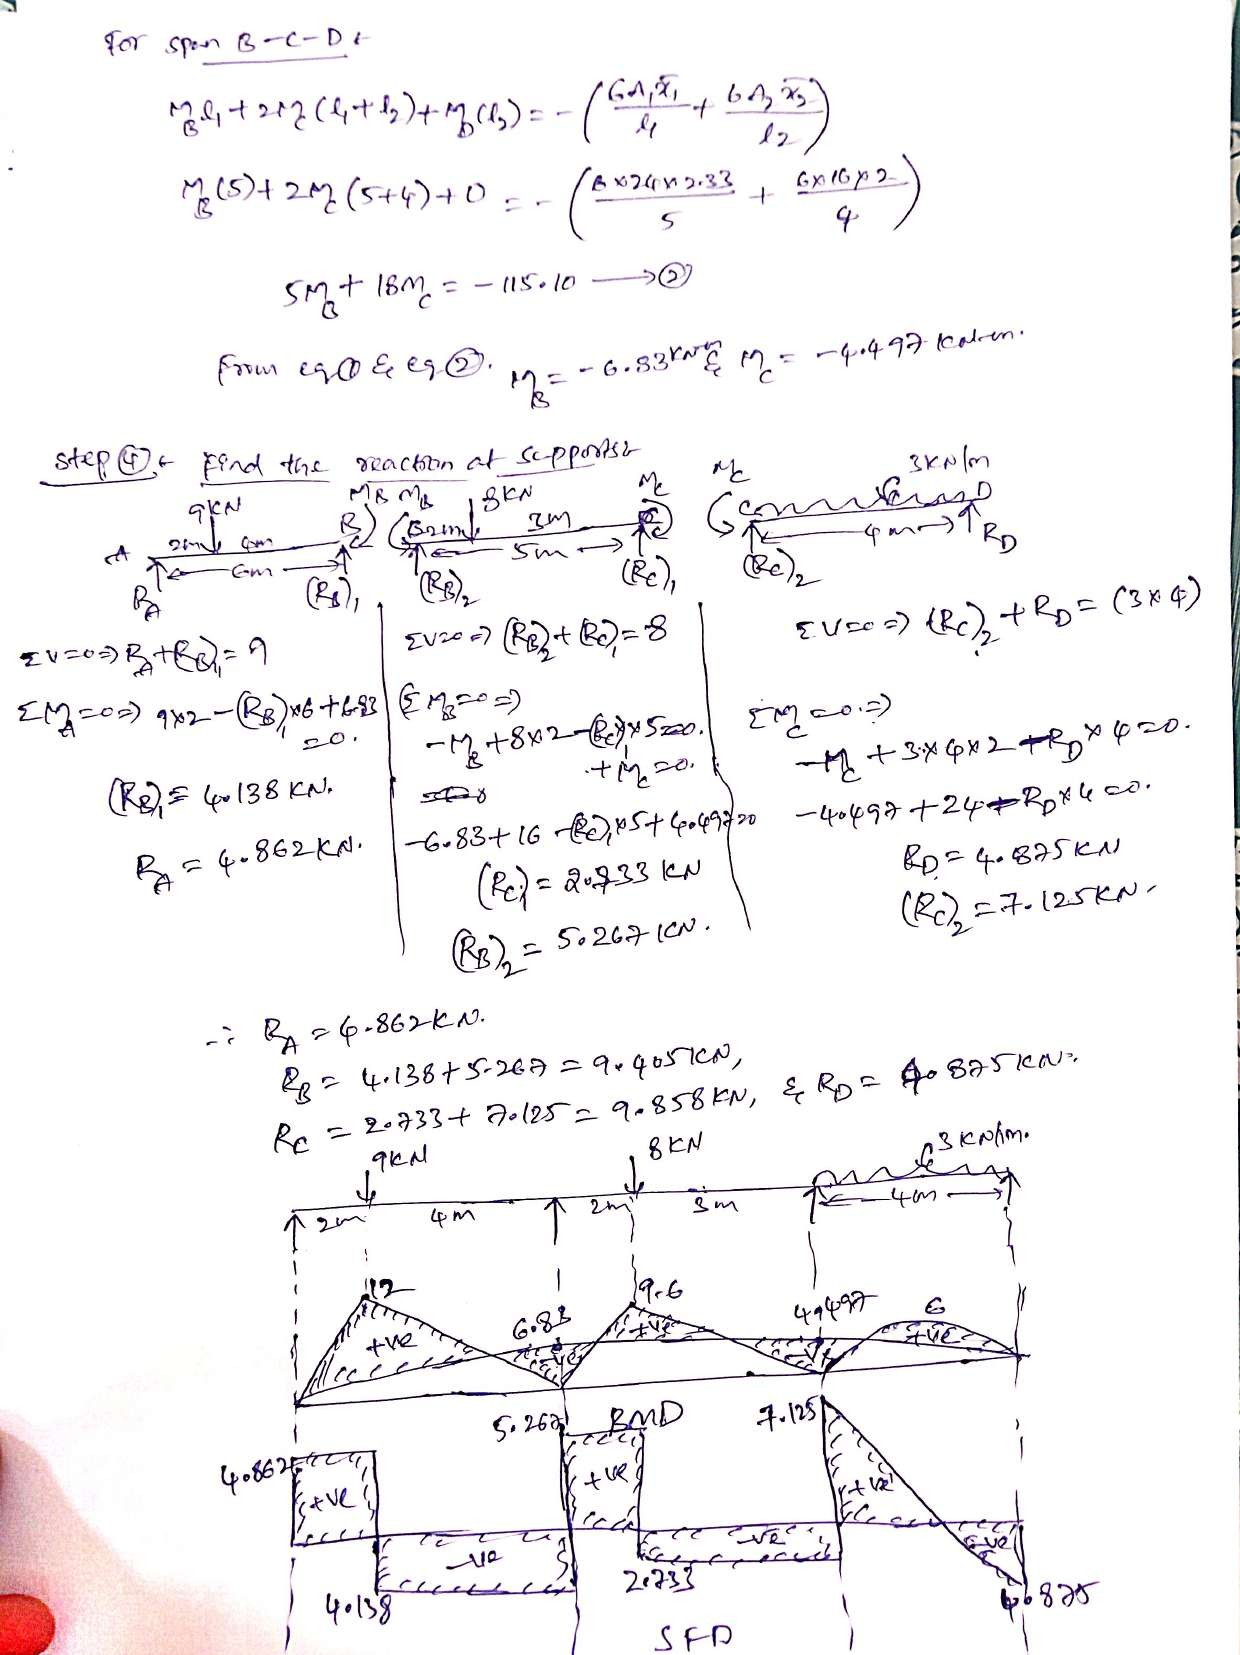 For span B-C-D:
M_B l₁ + 2M_C (l₁ + l₂) + M_D (l₂) = - (6A₁x̄₁/l₁ + 6A₂x̄₂/l₂)
M_B (5) + 2M_C (5+4) + 0 = - (6×24×2.33/5 + 6×16×2/4)
5M_B + 18M_C = -115.10 → ②
From eq ① & eq ②. M_B = -6.83 kN-m & M_C = -4.497 kN-m.
Step ④:- Find the reaction at supports:-
9KN M_B M_B 8KN M_C M_C 3KN/m
A 2m 4m B B 2m 3m C C D
6m 5m 4m
R_A (R_B)₁ (R_B)₂ (R_C)₁ (R_C)₂ R_D
ΣV=0 ⇒ R_A + (R_B)₁ = 9
ΣM_A=0 ⇒ 9×2 - (R_B)₁×6 + 6.83
=0.
(R_B)₁ = 4.138 KN.
R_A = 4.862 KN.
ΣV=0 ⇒ (R_B)₂ + (R_C)₁ = 8
ΣM_B=0 ⇒
-M_B + 8×2 - (R_C)₁×5
+ M_C = 0.
-6.83 + 16 - (R_C)₁×5 + 4.497=0
(R_C)₁ = 2.733 KN
(R_B)₂ = 5.267 KN.
ΣV=0 ⇒ (R_C)₂ + R_D = (3×4)
ΣM_C=0. ⇒
-M_C + 3×4×2 - R_D×4=0.
-4.497 + 24 - R_D×4=0.
R_D = 4.875 KN
(R_C)₂ = 7.125 KN.
∴ R_A = 4.862 KN.
R_B = 4.138 + 5.267 = 9.405 KN,
R_C = 2.733 + 7.125 = 9.858 KN, & R_D = 4.875 KN.
9KN 8KN 3KN/m.
2m 4m 2m 3m 4m
12 6.83 9.6 4.497 6
+ve -ve +ve -ve +ve
BMD
4.862 5.267 7.125
+ve +ve +ve
-ve -ve -ve
4.138 2.733 4.875
SFD